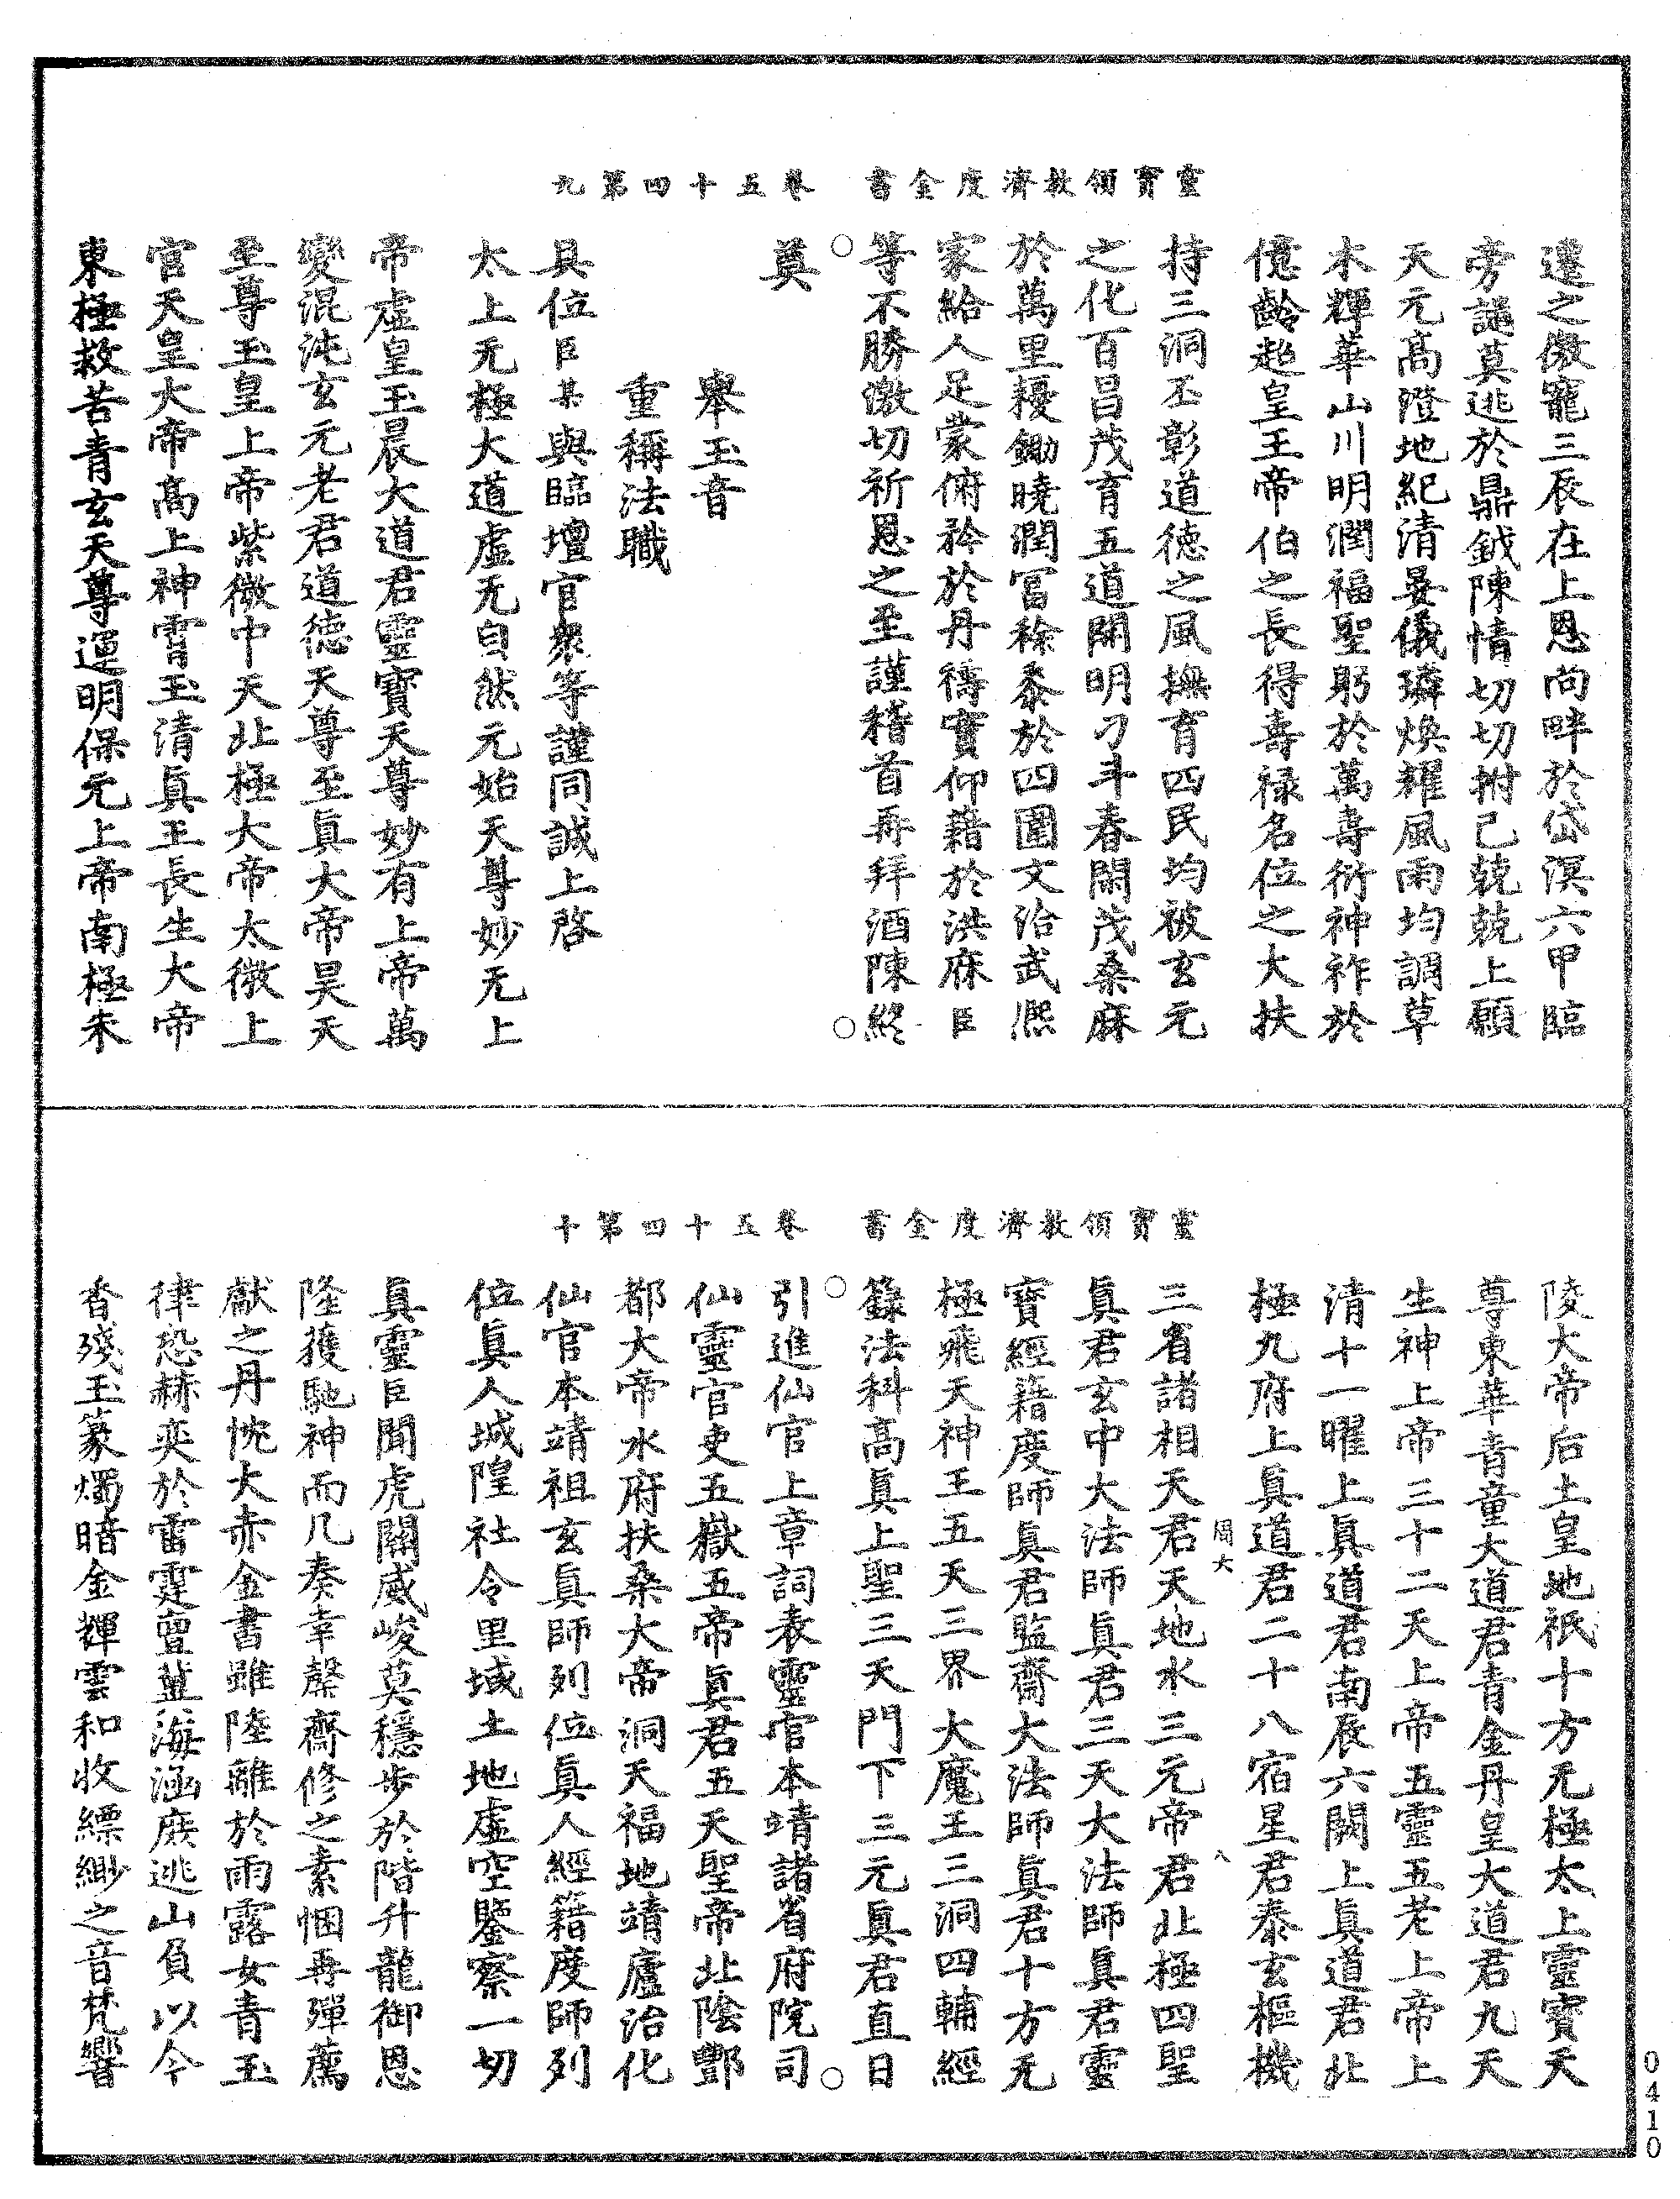 靈寶領教濟度金書　卷五十四第九
還之儆寵三辰在上恩尚畔於岱溟六甲臨
旁譴莫逃於鼎鉞陳情切切拊己兢兢上願
天元高澄地紀清晏儀璘煥耀風雨均調草
木輝華山川明潤福聖躬於萬壽衍神祚於
億齡超皇王帝伯之長得壽祿名位之大扶
持三洞丕彰道德之風撫育四民均被玄元
之化百昌茂育五道開明刁斗春閑茂桑麻
於萬里耰鋤曉潤冨稌黍於四圍文洽武熈
家給人足蒙俯矜於丹禱實仰藉於洪庥臣
等不勝激切祈恩之至謹稽首再拜酒陳終
奠
舉玉音
重稱法職
具位臣某與臨壇官衆等謹同誠上啓
太上无極大道虛无自然元始天尊妙无上
帝虛皇玉晨大道君靈寶天尊妙有上帝萬
變混沌玄元老君道德天尊至眞大帝昊天
至尊玉皇上帝紫微中天北極大帝太微上
宮天皇大帝高上神霄玉清眞王長生大帝
東極救苦青玄天尊運明保元上帝南極朱
靈寶領教濟度金書　卷五十四第十
陵大帝后土皇地祇十方无極太上靈寶天
尊東華青童大道君青金丹皇大道君九天
生神上帝三十二天上帝五靈五老上帝上
清十一曜上眞道君南辰六闕上眞道君北
極九府上眞道君二十八宿星君泰玄樞機
三省諸相天君天地水三元帝君北極四聖
眞君玄中大法師眞君三天大法師眞君靈
寶經籍度師眞君監齋大法師眞君十方无
極飛天神王五天三界大魔王三洞四輔經
籙法科高眞上聖三天門下三元眞君直日
引進仙官上章詞表靈官本靖諸省府院司
仙靈官吏五嶽五帝眞君五天聖帝北陰酆
都大帝水府扶桑大帝洞天福地靖廬治化
仙官本靖祖玄眞師列位眞人經籍度師列
位眞人城隍社令里域土地虛空鑒察一切
眞靈臣聞虎關威峻莫穩步於階升龍御恩
隆獲馳神而几奏幸罄齋修之素悃再殫薦
獻之丹忱大赤金書雖陸離於雨露女青玉
律恐赫奕於雷霆亶藎海涵庶逃山負以今
香殘玉篆燭暗金輝雲和收縹緲之音梵響
周大
八
0410